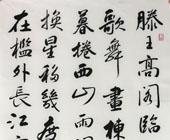 滕王高閣臨
歌舞畫棟
暮捲西山雨
換星移幾度
在檻外長江